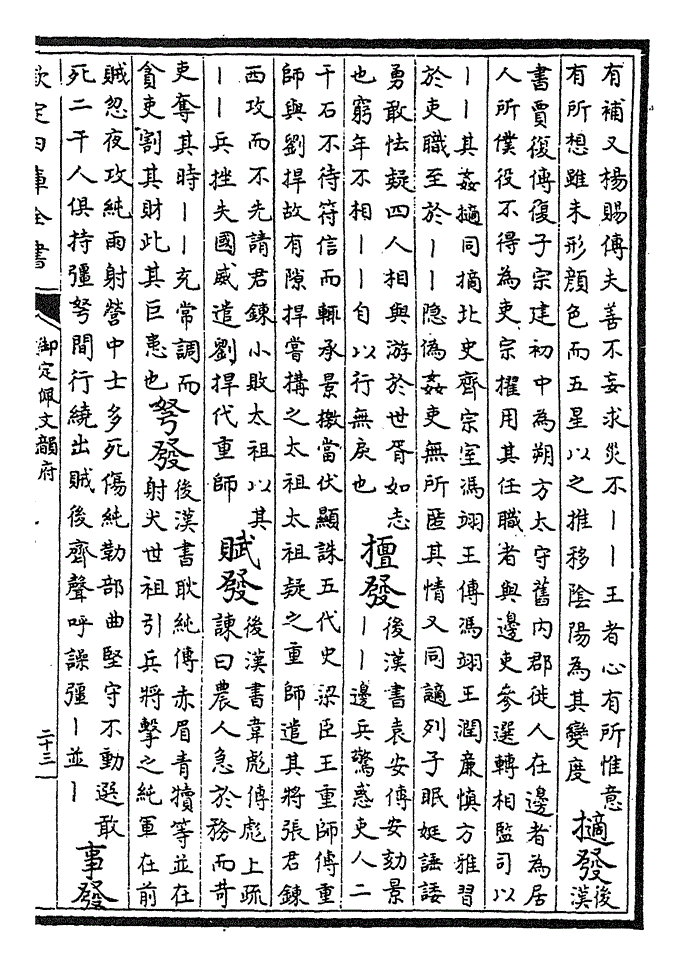 有補又楊賜傳夫善不妄求災不丨丨王者心有所惟意
有所想雖未形顔色而五星以之推移陰陽為其變度
擿發
後
漢
書賈復傳復子宗建初中為朔方太守舊内郡徙人在邊者為居
人所僕役不得為吏宗擢用其任職者與邊吏參選轉相監司以
丨丨其姦擿同摘北史齊宗室馮翊王傳馮翊王潤廉慎方雅習
於吏職至於丨丨隱偽姦吏無所匿其情又同讁列子眠娗諈諉
勇敢怯疑四人相與游於世胥如志
也窮年不相丨丨自以行無戾也
擅發
後漢書袁安傳安劾景
丨丨邊兵驚惑吏人二
千石不待符信而輒承景檄當伏顯誅五代史梁臣王重師傳重
師與劉捍故有隙捍嘗搆之太祖太祖疑之重師遣其將張君鍊
西攻而不先請君鍊小敗太祖以其
丨丨兵挫失國威遣劉捍代重師
賦發
後漢書韋彪傳彪上疏
諫曰農人急於務而苛
吏奪其時丨丨充常調而
貪吏割其財此其巨患也
弩發
後漢書耿純傳赤眉青犢等並在
射犬世祖引兵將擊之純軍在前
賊忽夜攻純雨射營中士多死傷純勒部曲堅守不動選敢
死二千人俱持彊弩間行繞出賊後齊聲呼譟彊丨並丨
事發
欽定四庫全書
御定佩文韻府
二十三